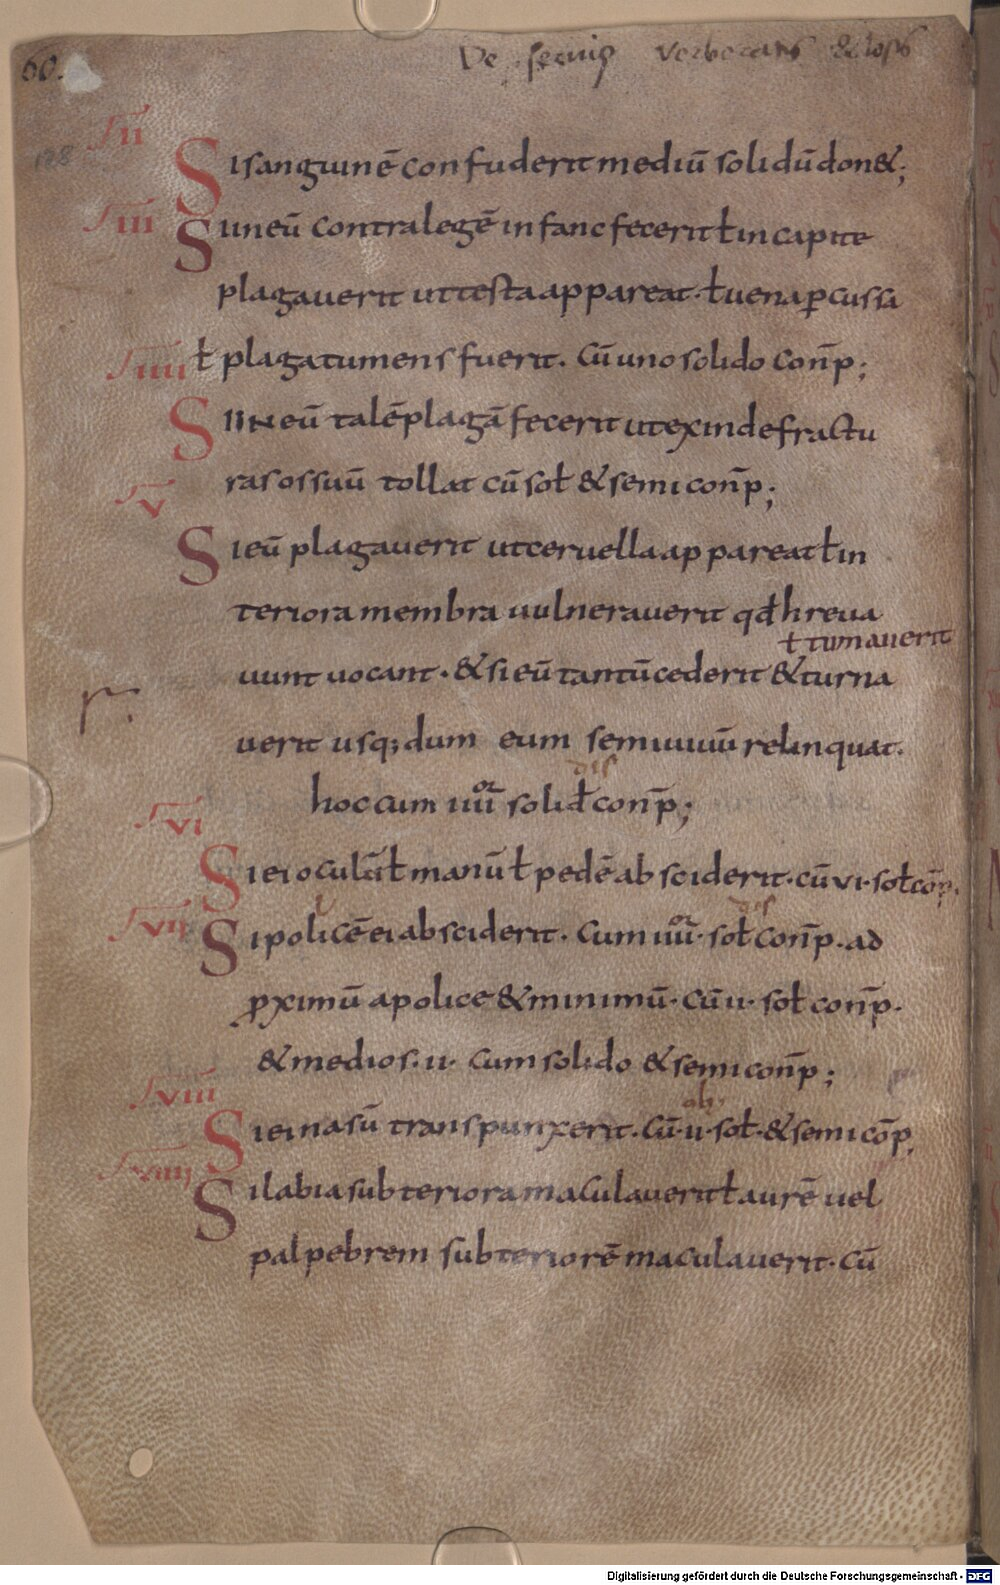 60.
De servis verberatis & lesis
II
128
Si sanguinē confuderit mediū solidū don&;
III
Si in eū contra legē infanc fecerit ł in capite
plagaverit ut testa appareat · ł uena ꝑcussa
ł plaga tumens fuerit. Cū uno solido conp̄;
IIII
Si in eū talē plagā fecerit ut exinde fractu
ras ossuū tollat cū soł & semi conp̄;
V
Si eū plagauerit ut ceruella appareat ł in
teriora membra uulnerauerit qđ hreua
ł tumauerit
uunt uocant · & si eū tantū cederit & turna
uerit usq; dum eum semiuiuū relinquat.
hoc cum IIIIor solid conp̄;
VI
Si ei oculū ł manū ł pedē absciderit · cū VI · soł cōp.
VII
Si policē ei absciderit. Cum IIIIor · soł conp̄ · ad
ꝓximū a police & minimū · Cū II · soł conp̄.
& medios · II · Cum solido & semi conp̄;
VIII
Si ei nasū transpunxerit · Cū · II · soł · & semi cōp;
VIIII
Si labia subteriora maculauerit ł aurē uel
palpebrem subteriorē maculauerit · Cū
Digitalisierung gefördert durch die Deutsche Forschungsgemeinschaft - DFG